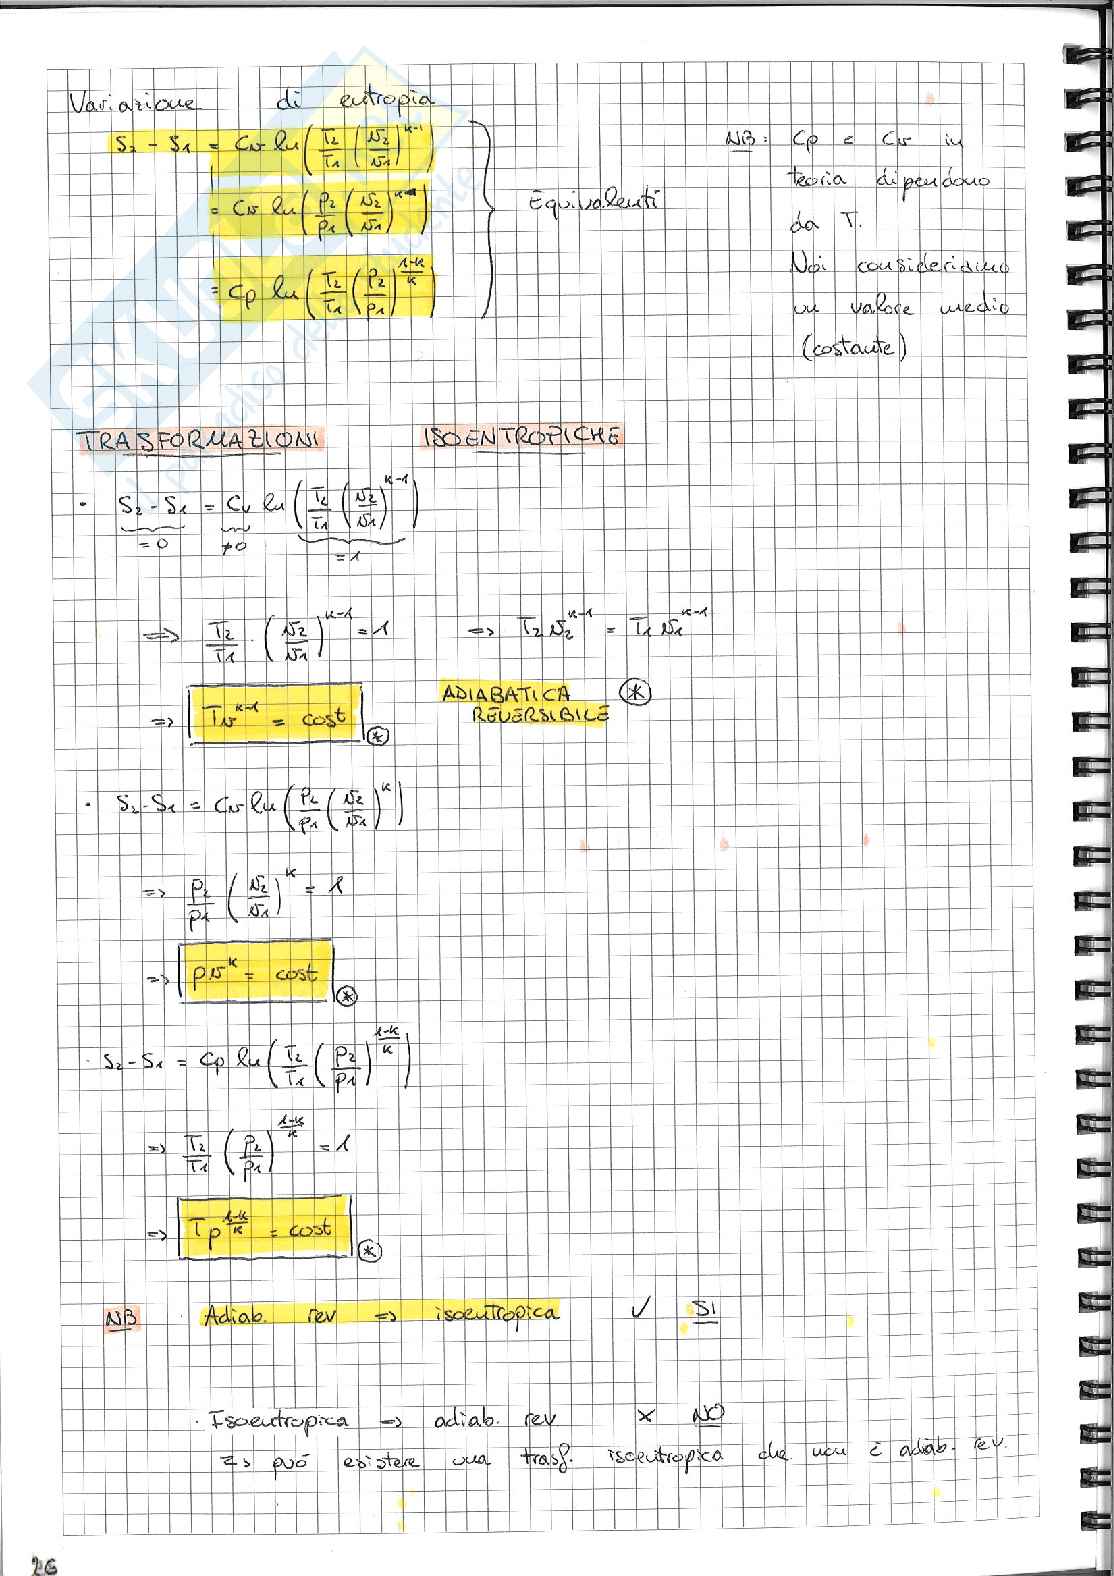 Variazione di entropia
S₂ - S₁ = Cv ln(T₂/T₁ (v₂/v₁)^(k-1))
= Cv ln(p₂/p₁ (v₂/v₁)^k)
= Cp ln(T₂/T₁ (p₂/p₁)^((1-k)/k))
Equivalenti
NB: Cp e Cv in
teoria dipendono
da T.
Noi consideriamo
un valore medio
(costante)
TRASFORMAZIONI ISOENTROPICHE
· S₂ - S₁ = Cv ln(T₂/T₁ (v₂/v₁)^(k-1))
= 0 ≠0 = 1
=> T₂/T₁ · (v₂/v₁)^(k-1) = 1 => T₂v₂^(k-1) = T₁v₁^(k-1)
=> Tv^(k-1) = cost * ADIABATICA REVERSIBILE *
· S₂ - S₁ = Cv ln(p₂/p₁ (v₂/v₁)^k)
=> p₂/p₁ (v₂/v₁)^k = 1
=> pv^k = cost *
· S₂ - S₁ = Cp ln(T₂/T₁ (p₂/p₁)^((1-k)/k))
=> T₂/T₁ (p₂/p₁)^((1-k)/k) = 1
=> Tp^((1-k)/k) = cost *
NB · Adiab. rev => isoentropica ✓ SI
· Isoentropica => adiab. rev × NO
=> può esistere una trasf. isoentropica che non è adiab. rev.
26